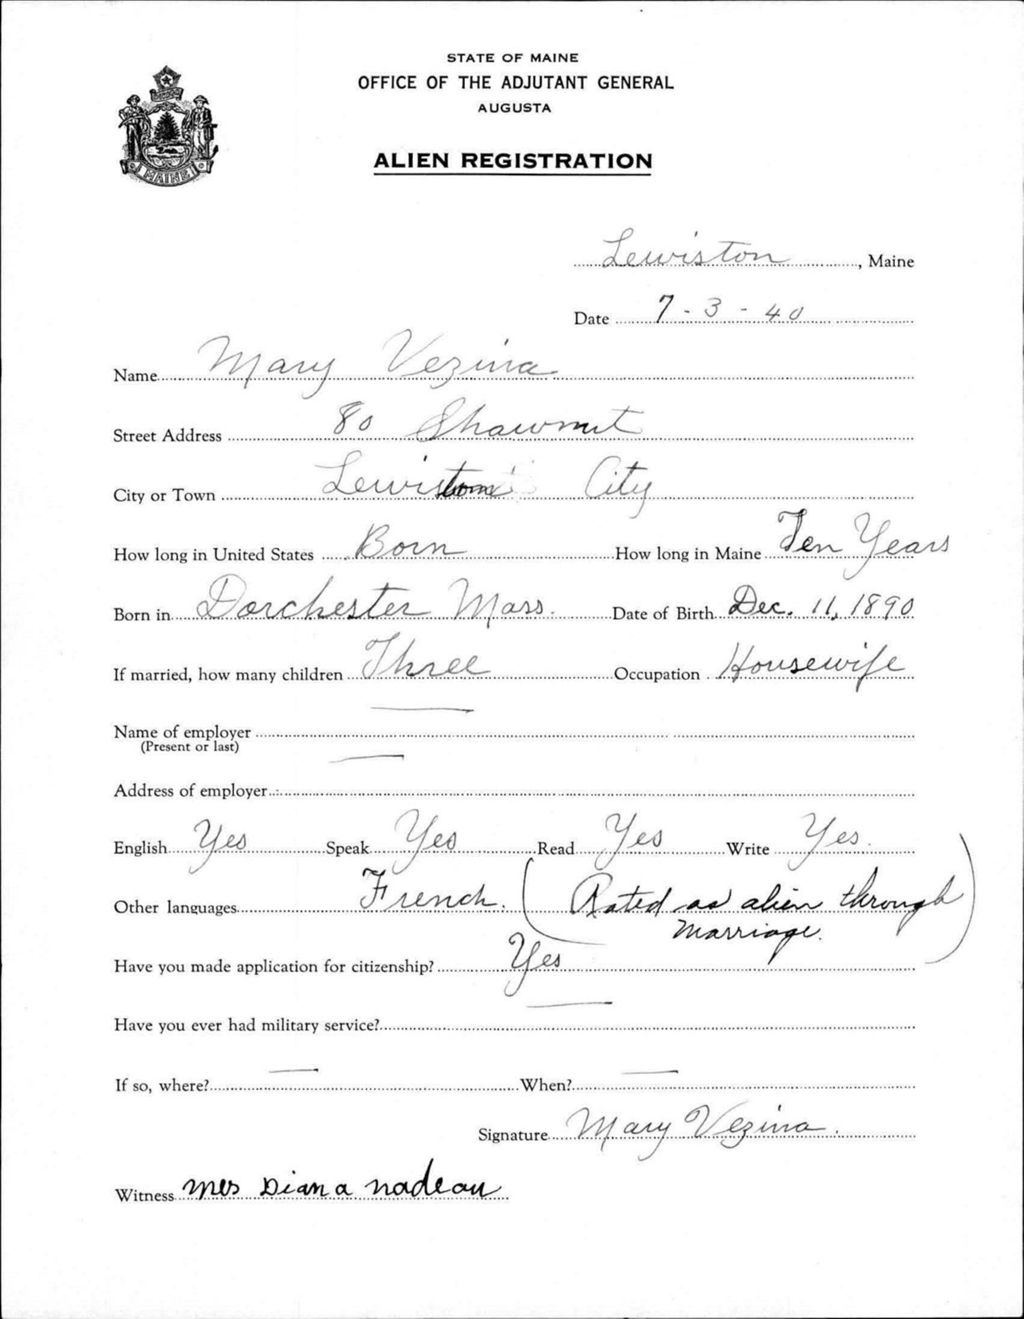 STATE OF MAINE
OFFICE OF THE ADJUTANT GENERAL
AUGUSTA
ALIEN REGISTRATION
MAINE
Lewiston, Maine
Date 7-3-40
Name Mary Vezina
Street Address 80 Shawmut
City or Town Lewiston City
How long in United States Born How long in Maine Ten Years
Born in Dorchester Mass. Date of Birth Dec. 11, 1890
If married, how many children Three Occupation Housewife
Name of employer —
(Present or last)
Address of employer —
English Yes Speak Yes Read Yes Write Yes.
Other languages French. (Rated as alien through
marriage.)
Have you made application for citizenship? Yes
Have you ever had military service? —
If so, where? — When? —
Signature Mary Vezina.
Witness Mrs Diana Nadeau